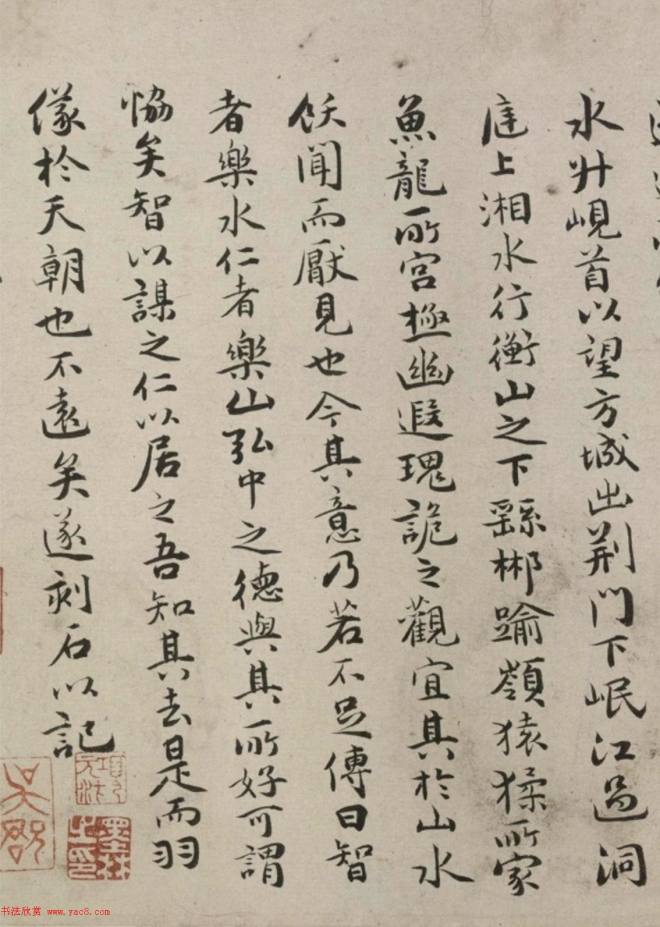 水升峴首以望方城出荆門下岷江過洞
庭上湘水行衡山之下繇郴踰嶺猿猱所家
魚龍所宮極幽遐瑰詭之觀宜其於山水
飫聞而厭見也今其意乃若不足傳曰智
者樂水仁者樂山弘中之德與其所好可謂
恊矣智以謀之仁以居之吾知其去是而羽
儀於天朝也不遠矣遂刻石以記
吴郡
书法欣赏 www.yac8.com